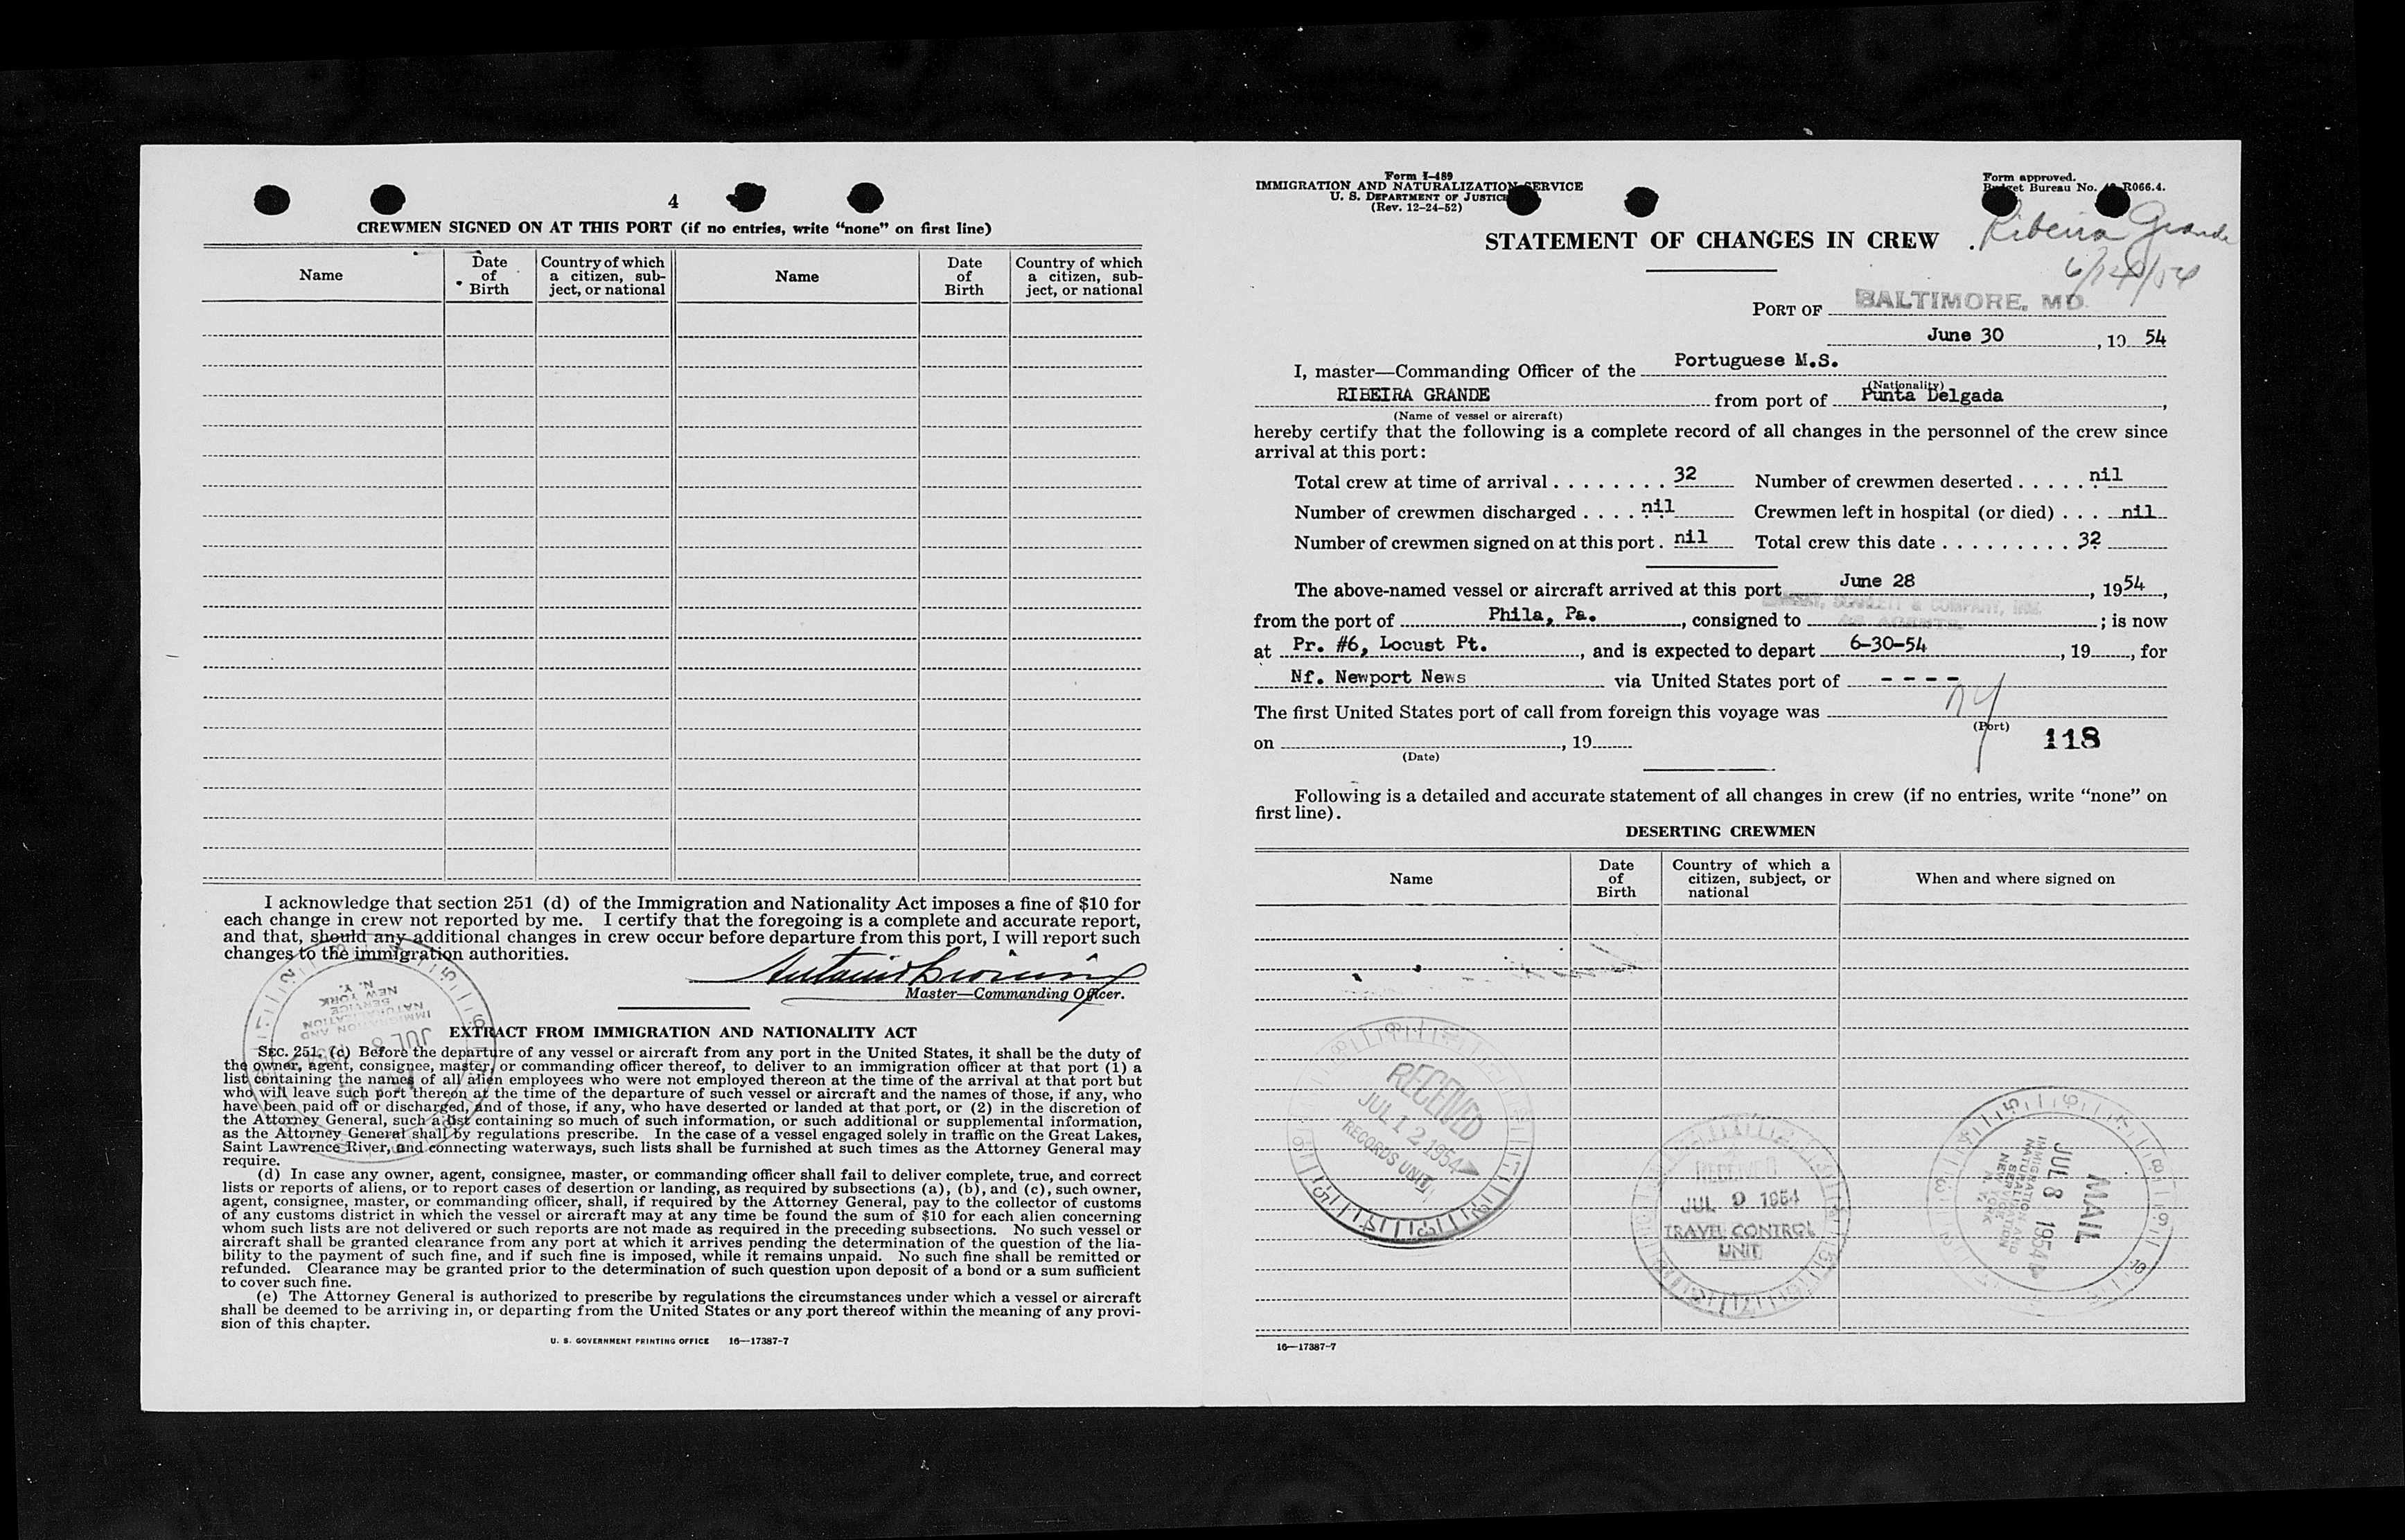 4
CREWMEN SIGNED ON AT THIS PORT (if no entries, write “none” on first line)
Name
Date of Birth
Country of which a citizen, sub-ject, or national
Name
Date of Birth
Country of which a citizen, sub-ject, or national
I acknowledge that section 251 (d) of the Immigration and Nationality Act imposes a fine of $10 for
each change in crew not reported by me. I certify that the foregoing is a complete and accurate report,
and that, should any additional changes in crew occur before departure from this port, I will report such
changes to the immigration authorities.
Master—Commanding Officer.
EXTRACT FROM IMMIGRATION AND NATIONALITY ACT
SEC. 251. (c) Before the departure of any vessel or aircraft from any port in the United States, it shall be the duty of
the owner, agent, consignee, master, or commanding officer thereof, to deliver to an immigration officer at that port (1) a
list containing the names of all alien employees who were not employed thereon at the time of the arrival at that port but
who will leave such port thereon at the time of the departure of such vessel or aircraft and the names of those, if any, who
have been paid off or discharged, and of those, if any, who have deserted or landed at that port, or (2) in the discretion of
the Attorney General, such a list containing so much of such information, or such additional or supplemental information,
as the Attorney General shall by regulations prescribe. In the case of a vessel engaged solely in traffic on the Great Lakes,
Saint Lawrence River, and connecting waterways, such lists shall be furnished at such times as the Attorney General may
require.
(d) In case any owner, agent, consignee, master, or commanding officer shall fail to deliver complete, true, and correct
lists or reports of aliens, or to report cases of desertion or landing, as required by subsections (a), (b), and (c), such owner,
agent, consignee, master, or commanding officer, shall, if required by the Attorney General, pay to the collector of customs
of any customs district in which the vessel or aircraft may at any time be found the sum of $10 for each alien concerning
whom such lists are not delivered or such reports are not made as required in the preceding subsections. No such vessel or
aircraft shall be granted clearance from any port at which it arrives pending the determination of the question of the lia-
bility to the payment of such fine, and if such fine is imposed, while it remains unpaid. No such fine shall be remitted or
refunded. Clearance may be granted prior to the determination of such question upon deposit of a bond or a sum sufficient
to cover such fine.
(e) The Attorney General is authorized to prescribe by regulations the circumstances under which a vessel or aircraft
shall be deemed to be arriving in, or departing from the United States or any port thereof within the meaning of any provi-
sion of this chapter.
U. S. GOVERNMENT PRINTING OFFICE 16—17387-7
Form I-489
IMMIGRATION AND NATURALIZATION SERVICE
U. S. DEPARTMENT OF JUSTICE
(Rev. 12-24-52)
Form approved.
Budget Bureau No. R066.4.
Ribeira Grande
STATEMENT OF CHANGES IN CREW
PORT OF BALTIMORE, MD.
June 30, 19 54
I, master—Commanding Officer of the Portuguese M.S.
(Nationality)
RIBEIRA GRANDE from port of Punta Delgada,
(Name of vessel or aircraft)
hereby certify that the following is a complete record of all changes in the personnel of the crew since
arrival at this port:
Total crew at time of arrival . . . . . . . . 32 Number of crewmen deserted . . . . . nil
Number of crewmen discharged . . . . nil Crewmen left in hospital (or died) . . . nil
Number of crewmen signed on at this port . nil Total crew this date . . . . . . . . . 32
The above-named vessel or aircraft arrived at this port June 28, 1954,
from the port of Phila, Pa., consigned to ; is now
at Pr. #6, Locust Pt., and is expected to depart 6-30-54, 19, for
Nf. Newport News via United States port of - - - -
The first United States port of call from foreign this voyage was NY
(Port)
on , 19
(Date)
118
Following is a detailed and accurate statement of all changes in crew (if no entries, write “none” on
first line).
DESERTING CREWMEN
Name
Date of Birth
Country of which a citizen, subject, or national
When and where signed on
RECEIVED
JUL 12 1954
RECORDS UNIT
RECEIVED
JUL 9 1954
TRAVEL CONTROL
UNIT
MAIL
JUL 8 1954
IMMIGRATION AND
NATURALIZATION
SERVICE
NEW YORK
N. Y.
16—17387-7